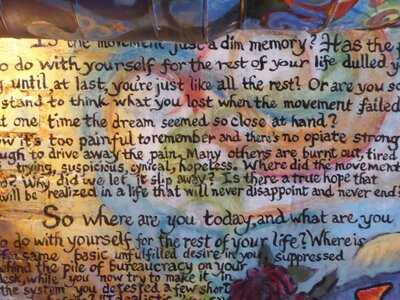 Is the movement just a dim memory? Has the
o do with yourself for the rest of your life dulled yo
g until at last, you're just like all the rest? Or are you so
stand to think what you lost when the movement failed
at one time the dream seemed so close at hand?
ow it's too painful to remember and there's no opiate strong
ugh to drive away the pain. Many others are burnt out, tired
trying, suspicious, cynical, hopeless. Where did the movement
go? Why did we let it slip away? Is there a true hope that
will be realized in a life that will never disappoint and never end?
So where are you today, and what are you
o do with yourself for the rest of your life? Where is
same basic unfulfilled desire in you, suppressed
behind the pile of bureaucracy on your
desk, while you now try to make it
the system you detested a few short